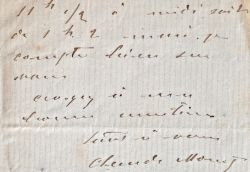 11 h 1/2 à midi soit
de 1 h 2
compte bien sur
vous
croyez à mes
bonnes amitiés
tout à vous
Claude Monet